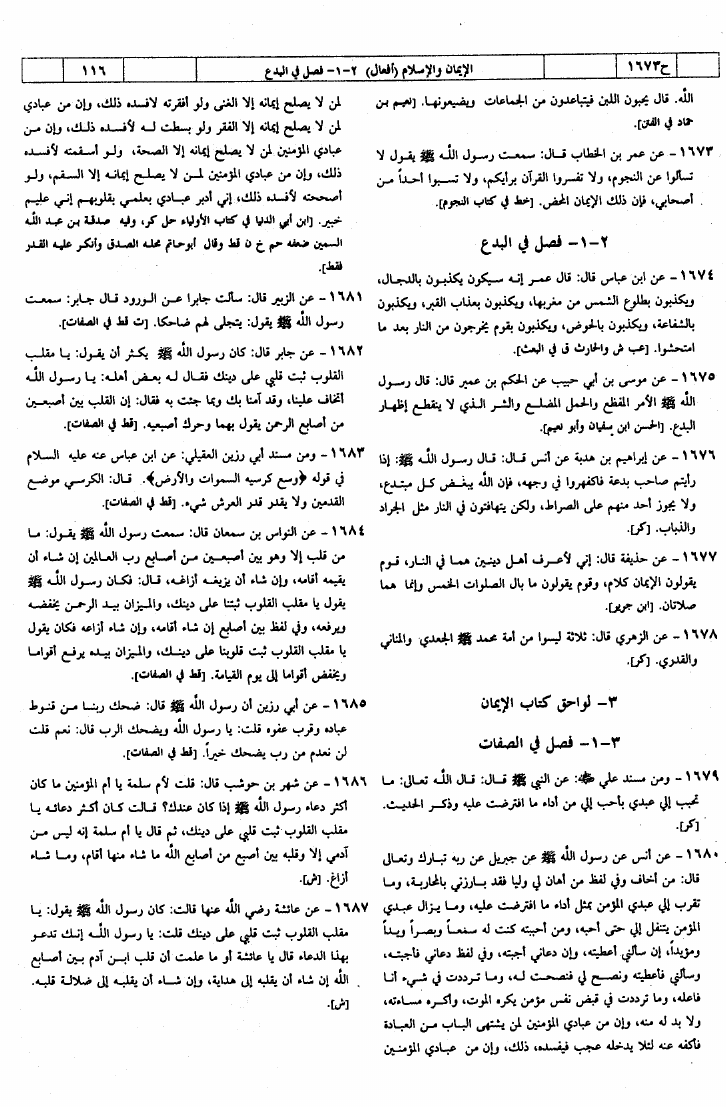 ح١٦٧٣
الإيمان والإسلام (أفعال) ٢-١- فصل في البدع
١١٦
الله. قال يحبون اللبن فيتباعدون من الجماعات ويضيعونها. [نعيم بن
حماد في الفتن].
١٦٧٣- عن عمر بن الخطاب قال: سمعت رسول الله ﷺ يقول لا
تسألوا عن النجوم، ولا تفسروا القرآن برأيكم، ولا تسبوا أحداً من
أصحابي، فإن ذلك الإيمان المحض. [خط في كتاب النجوم].
٢-١- فصل في البدع
١٦٧٤- عن ابن عباس قال: قال عمر إنه سيكون يكذبون بالدجال،
ويكذبون بطلوع الشمس من مغربها، ويكذبون بعذاب القبر، ويكذبون
بالشفاعة، ويكذبون بالحوض، ويكذبون بقوم يخرجون من النار بعد ما
امتحشوا. [عب ش والحارث ق في البعث].
١٦٧٥- عن موسى بن أبي حبيب عن الحكم بن عمير قال: قال رسول
الله ﷺ الأمر المفظع والحمل المضلع والشر الذي لا ينقطع إظهار
البدع. [الحسن ابن سفيان وأبو نعيم].
١٦٧٦- عن إبراهيم بن هدبة عن أنس قال: قال رسول الله ﷺ: إذا
رأيتم صاحب بدعة فاكفهروا في وجهه، فإن الله يبغض كل مبتدع،
ولا يجوز أحد منهم على الصراط، ولكن يتهافتون في النار مثل الجراد
والذباب. [كر].
١٦٧٧- عن حذيفة قال: إني لأعرف أهل دينين هما في النار، قوم
يقولون الإيمان كلام، وقوم يقولون ما بال الصلوات الخمس وإنما هما
صلاتان. [ابن جرير].
١٦٧٨- عن الزهري قال: ثلاثة ليسوا من أمة محمد ﷺ الجعدي والمناني
والقدري. [كر].
٣- لواحق كتاب الإيمان
٣-١- فصل في الصفات
١٦٧٩- ومن مسند علي ﷺ: عن النبي ﷺ قال: قال الله تعالى: ما
تحبب إلي عبدي بأحب إلي من أداء ما افترضت عليه وذكر الحديث.
[كر].
١٦٨٠- عن أنس عن رسول الله ﷺ عن جبريل عن ربه تبارك وتعالى
قال: من أخاف وفي لفظ من أهان لي وليا فقد بارزني بالمحاربة، وما
تقرب إلي عبدي المؤمن بمثل أداء ما افترضت عليه، وما يزال عبدي
المؤمن يتنفل إلي حتى أحبه، ومن أحببته كنت له سمعاً وبصراً ويداً
ومؤيداً، إن سألني أعطيته، وإن دعاني أجبته، وفي لفظ دعاني فأجبته،
وسألني فأعطيته ونصح لي فنصحت له، وما ترددت في شيء أنا
فاعله، وما ترددت في قبض نفس مؤمن يكره الموت، وأكره مساءته،
ولا بد له منه، وإن من عبادي المؤمنين لمن يشتهي الباب من العبادة
فأكفه عنه لئلا يدخله عجب فيفسده، ذلك، وإن من عبادي المؤمنين
لمن لا يصلح إيمانه إلا الغنى ولو أفقرته لأفسده ذلك، وإن من عبادي
لمن لا يصلح إيمانه إلا الفقر ولو بسطت له لأفسده ذلك، وإن من
عبادي المؤمنين لمن لا يصلح إيمانه إلا الصحة، ولو أسقمته لأفسده
ذلك، وإن من عبادي المؤمنين لمن لا يصلح إيمانه إلا السقم، ولو
أصححته لأفسده ذلك، إني أدبر عبادي بعلمي بقلوبهم إني عليم
خبير. [ابن أبي الدنيا في كتاب الأولياء حل كر، وفيه صدقة بن عبد الله
السمين ضعفه حم خ ن قط وقال أبوحاتم محله الصدق وأنكر عليه القدر
فقط].
١٦٨١- عن الزبير قال: سألت جابرا عن الورود قال جابر: سمعت
رسول الله ﷺ يقول: يتجلى لهم ضاحكا. [ت قط في الصفات].
١٦٨٢- عن جابر قال: كان رسول الله ﷺ يكثر أن يقول: يا مقلب
القلوب ثبت قلبي على دينك فقال له بعض أهله: يا رسول الله
أتخاف علينا، وقد آمنا بك وبما جئت به فقال: إن القلب بين أصبعين
من أصابع الرحمن يقول بهما وحرك أصبعيه. [قط في الصفات].
١٦٨٣- ومن مسند أبي رزين العقيلي: عن ابن عباس عنه عليه السلام
في قوله ﴿وسع كرسيه السموات والأرض﴾. قال: الكرسي موضع
القدمين ولا يقدر قدر العرش شيء. [قط في الصفات].
١٦٨٤- عن النواس بن سمعان قال: سمعت رسول الله ﷺ يقول: ما
من قلب إلا وهو بين أصبعين من أصابع رب العالمين إن شاء أن
يقيمه أقامه، وإن شاء أن يزيغه أزاغه، قال: فكان رسول الله ﷺ
يقول يا مقلب القلوب ثبتنا على دينك، والميزان بيد الرحمن يخفضه
ويرفعه، وفي لفظ بين أصابع إن شاء أقامه، وإن شاء أزاغه فكان يقول
يا مقلب القلوب ثبت قلوبنا على دينك، والميزان بيده يرفع أقواما
ويخفض أقواما إلى يوم القيامة. [قط في الصفات].
١٦٨٥- عن أبي رزين أن رسول الله ﷺ قال: ضحك ربنا من قنوط
عباده وقرب عفوه قلت: يا رسول الله ويضحك الرب قال: نعم قلت
لن نعدم من رب يضحك خيراً. [قط في الصفات].
١٦٨٦- عن شهر بن حوشب قال: قلت لأم سلمة يا أم المؤمنين ما كان
أكثر دعاء رسول الله ﷺ إذا كان عندك؟ قالت كان أكثر دعائه يا
مقلب القلوب ثبت قلبي على دينك، ثم قال يا أم سلمة إنه ليس من
آدمي إلا وقلبه بين أصبع من أصابع الله ما شاء منها أقام، وما شاء
أزاغ. [ش].
١٦٨٧- عن عائشة رضي الله عنها قالت: كان رسول الله ﷺ يقول: يا
مقلب القلوب ثبت قلبي على دينك قلت: يا رسول الله إنك تدعو
بهذا الدعاء قال يا عائشة أو ما علمت أن قلب ابن آدم بين أصابع
الله إن شاء أن يقلبه إلى هداية، وإن شاء أن يقلبه إلى ضلالة قلبه.
[ش].